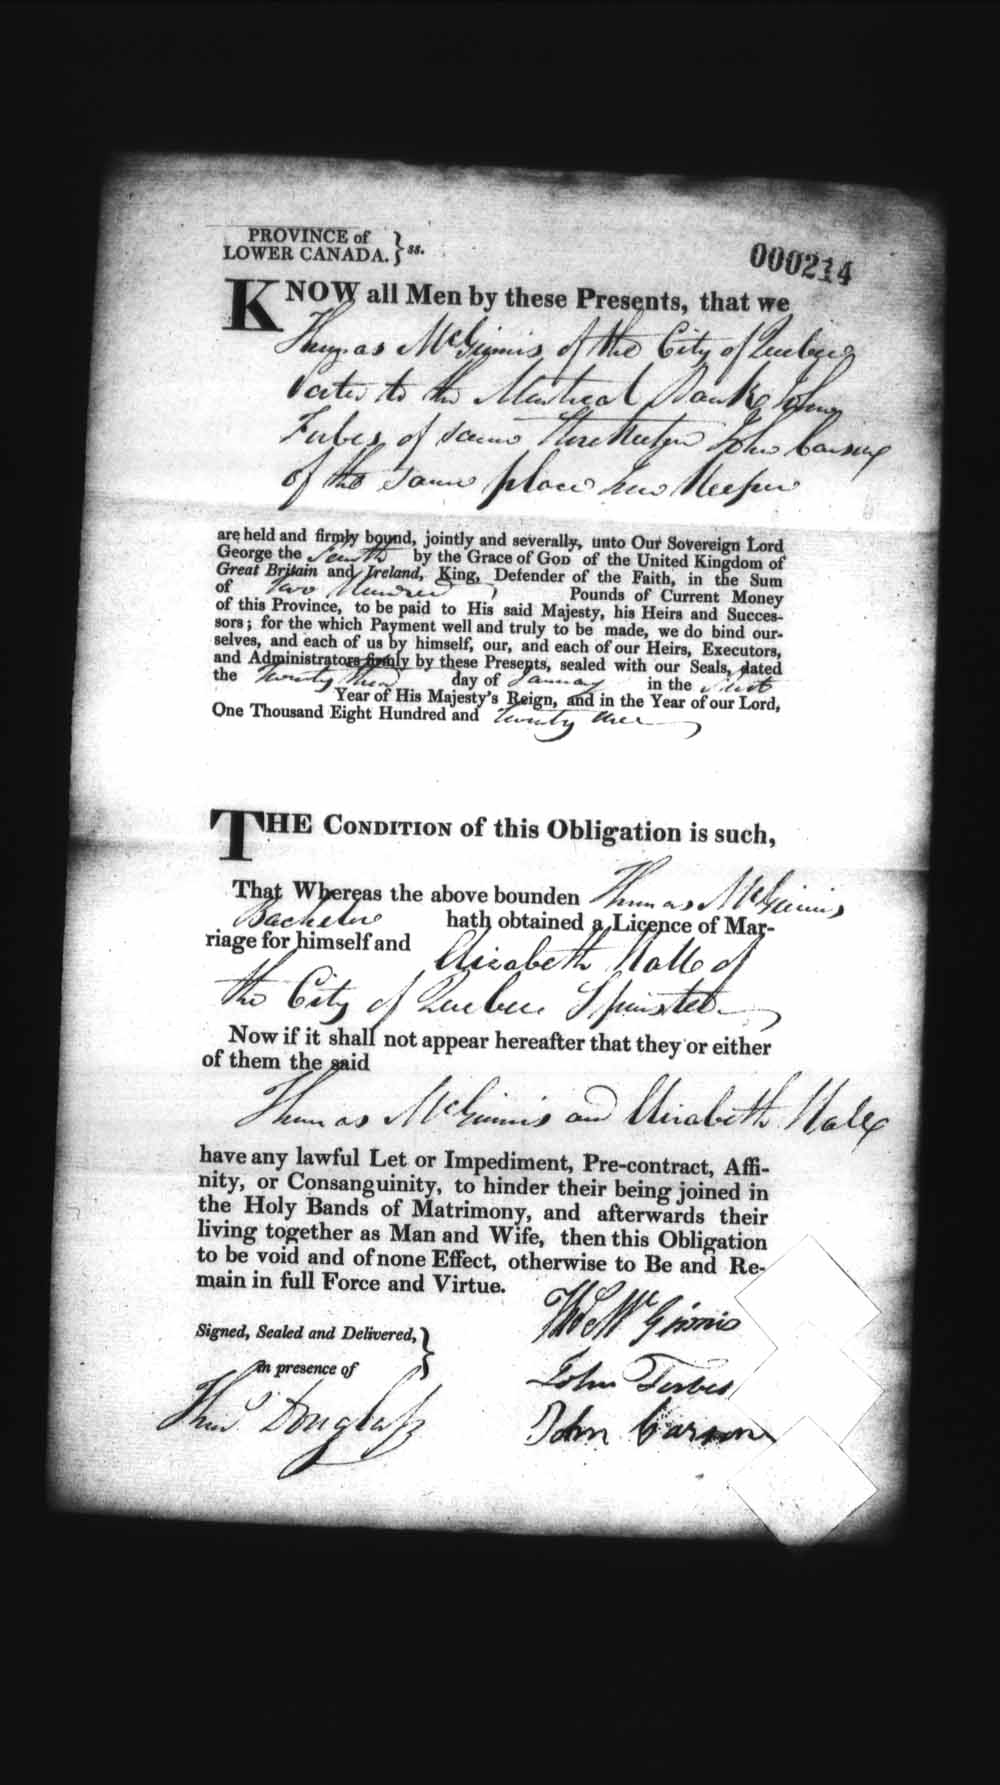 PROVINCE of
LOWER CANADA. } ss.
000214
KNOW all Men by these Presents, that we
Thomas McGinnis of the City of Quebec
Porter to the Montreal Bank John
Forbes of same Storekeeper John Carson
of the same place Inn Keeper
are held and firmly bound, jointly and severally, unto Our Sovereign Lord
George the Fourth by the Grace of GOD of the United Kingdom of
Great Britain and Ireland, King, Defender of the Faith, in the Sum
of Two Hundred Pounds of Current Money
of this Province, to be paid to His said Majesty, his Heirs and Succes-
sors; for the which Payment well and truly to be made, we do bind our-
selves, and each of us by himself, our, and each of our Heirs, Executors,
and Administrators firmly by these Presents, sealed with our Seals, dated
the Twenty third day of January in the first
Year of His Majesty's Reign, and in the Year of our Lord,
One Thousand Eight Hundred and Twenty one
THE CONDITION of this Obligation is such,
That Whereas the above bounden Thomas McGinnis
Bachelor hath obtained a Licence of Mar-
riage for himself and Elizabeth Hall of
the City of Quebec Spinster
Now if it shall not appear hereafter that they or either
of them the said
Thomas McGinnis and Elizabeth Hall
have any lawful Let or Impediment, Pre-contract, Affi-
nity, or Consanguinity, to hinder their being joined in
the Holy Bands of Matrimony, and afterwards their
living together as Man and Wife, then this Obligation
to be void and of none Effect, otherwise to Be and Re-
main in full Force and Virtue.
Thos McGinnis
Signed, Sealed and Delivered, }
in presence of
John Forbes
Thos Douglass
John Carson